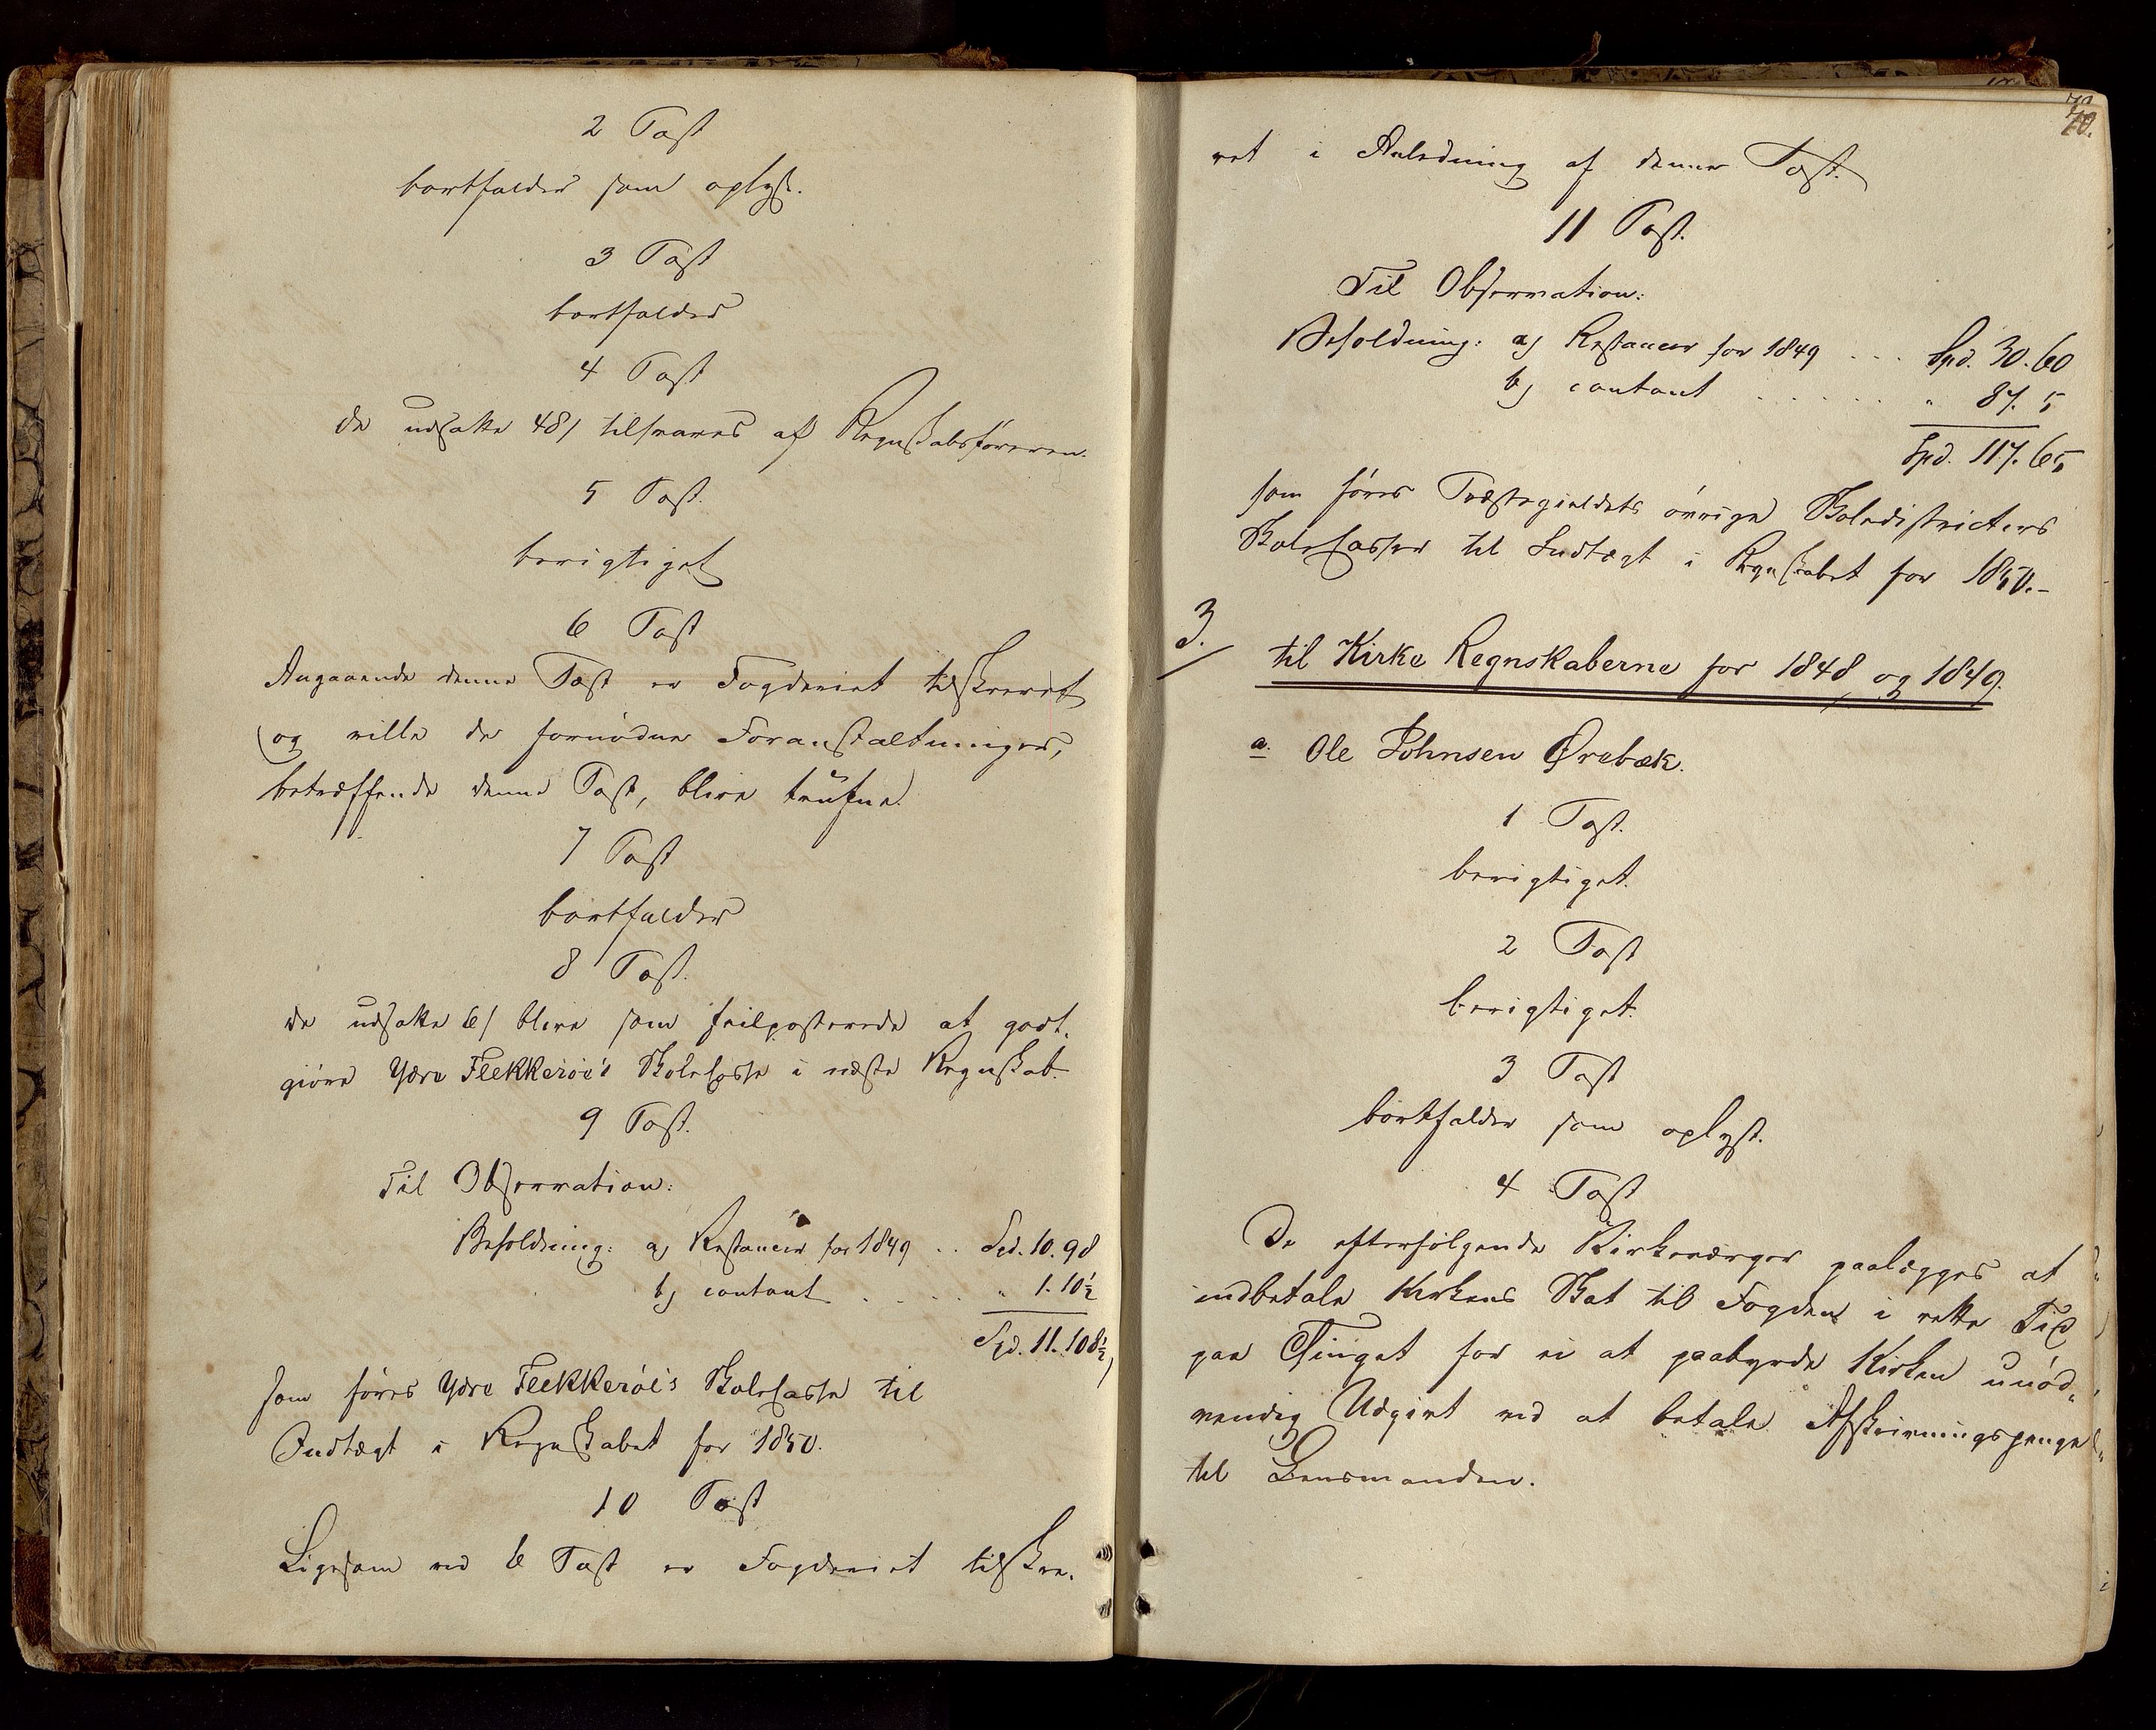 2 Post
bortfalder som oplyst.
3 Post
bortfalder
4 Post
de udsatte 48/ tilsvares af Regnskabsføreren.
5 Post.
berigtiget
6 Post
Angaaende denne Post er Fogderiet tilskrevet
og ville de fornødne Foranstaltninger,
betræffende denne Post, blive trufne.
7 Post
bortfalder
8 Post.
de udsatte 6/ blive som feilposterede at godt-
giøre Ydre Flekkerøe's Skolecasse i næste Regnskab.
9 Post.
Til Observation:
Beholdning: a) Restancer for 1849 .. Spd. 10. 98
b) contant . . . . " 1. 10½
Spd. 11. 108½,
som føres Ydre Flekkerøe's Skolecasse til
Indtægt i Regnskabet for 1850.
10 Post
Ligesom ved 6 Post er Fogderiet tilskre-
70.
vet i Anledning af denne Post.
11 Post.
Til Observation:
Beholdning: a) Restancer for 1849 ... Spd. 30. 60
b) contant . . . . . . " 87. 5
Spd. 117. 65
som føres Præstegieldets øvrige Skoledistricters
Skolecasser til Indtægt i Regnskabet for 1850.-
3. til Kirke Regnskaberne for 1848 og 1849.
a. Ole Johnsen Ørebæk.
1 Post.
berigtiget.
2 Post
berigtiget.
3 Post
bortfalder som oplyst.
4 Post
De efterfølgende Kirkeværger paalægges at
indbetale Kirkens Skat til Fogden i rette Tid
paa Thinget for ei at paabyrde Kirken unød-
vendig Udgivt ved at betale Afskrivningspenge
til Lensmanden.